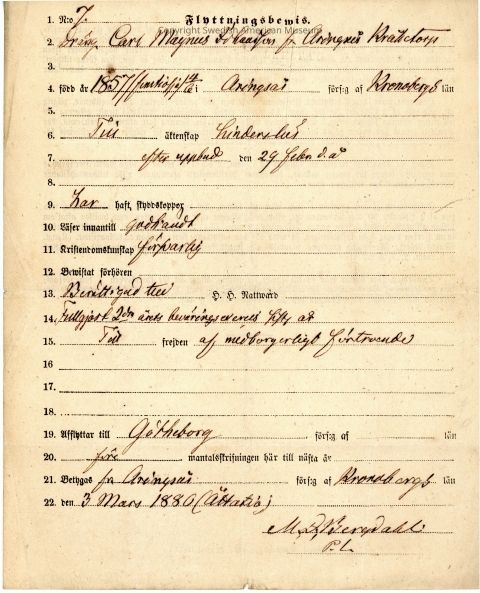 Flyttningsbewis.
Copyright Swedish American Museum
1. N:o 7.
2. Dräng Carl Magnus fr Aringsås
3.
4. född år 1857 i Aringsås förs:g af Kronobergs län
5.
6. Till äktenskap hinderslös
7. efter uppbud den 29 Febr d.å
8.
9. Har haft, skyddskoppor
10. Läser innantill godkändt
11. Kristendomskunskap försvarlig
12. Bewistat förhören
13. Berättigad till H. H. Nattward
14. Fullgjort 2dra årets beväringsexercis
15. Till frejden af medborgerligt förtroende
16
17
18.
19. Afflyttar till Götheborg förs:g af län
20. före mantalsskrifningen här till nästa år
21. Betygas fr Aringsås förs:g af Kronobergs län
22. den 3 Mars 1880 (Åttatio)
Bergdahl
P. L.